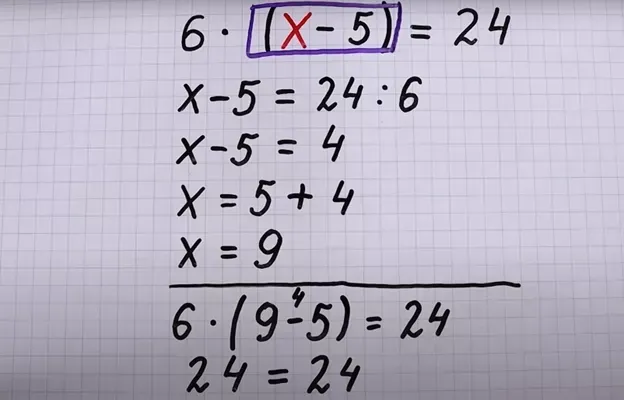 6 · (x - 5) = 24
x - 5 = 24 : 6
x - 5 = 4
x = 5 + 4
x = 9
4
6 · (9 - 5) = 24
24 = 24